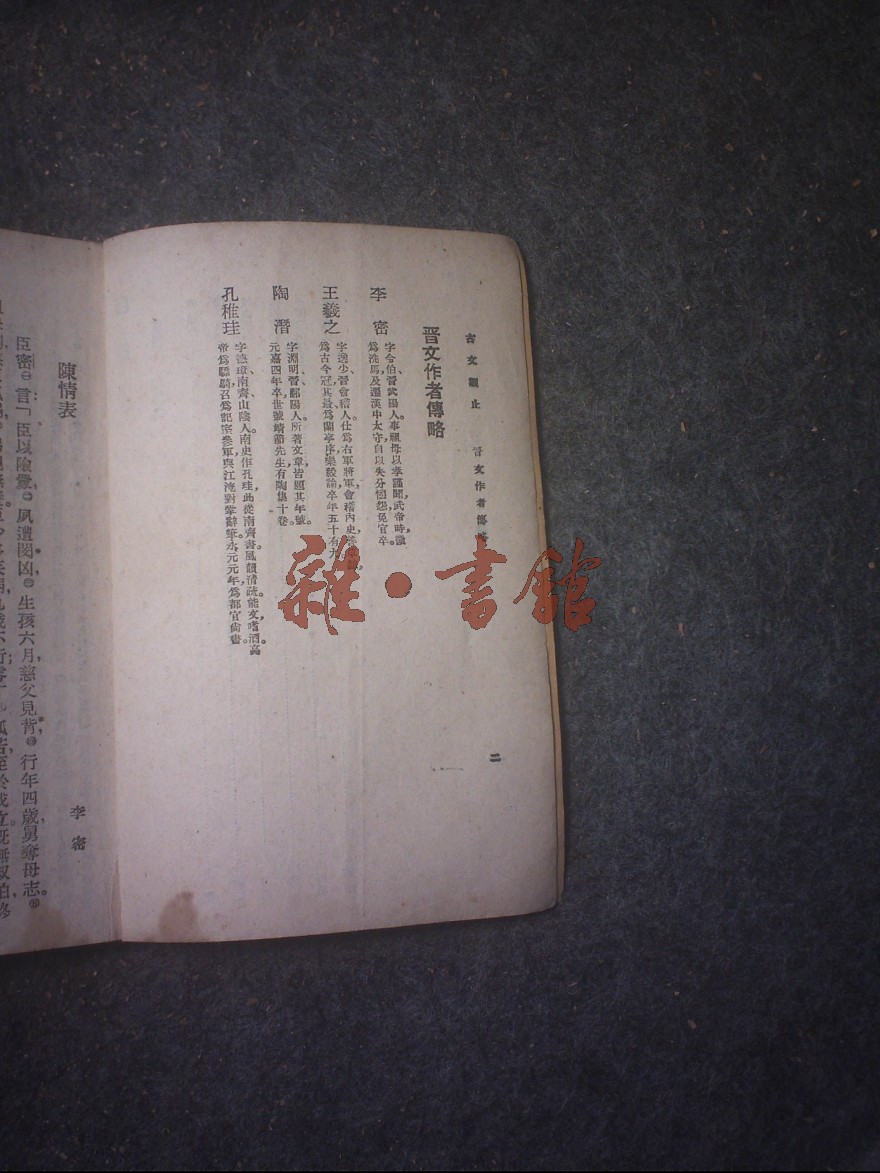 古文觀止 晉文作者傳
二
晉文作者傳略
李密
字令伯、晉武陽人。事祖母以孝謹聞、武帝時徵
為洗馬、及遷漢中太守、自以失分懷怨、免官卒。
王羲之
字逸少、晉會稽人。仕為右軍將軍、會稽內史、
為古今冠、其最為蘭亭序、樂毅論、卒年五十有九
陶潛
字淵明、晉鄱陽人。所著文章、皆題其年號。
元嘉四年卒、世號靖節先生、有陶集十卷。
孔稚珪
字德璋、南齊山陰人。南史作孔珪、此從南齊書。風韻清疏、能文嗜酒、高
帝為驃騎、召為記室參軍、與江淹對掌辭筆。永元元年、為都官尚書。
陳情表
李密
臣密㊀言「臣以險釁㊁夙遭閔凶。㊂生孩六月、慈父見背。㊃行年四歲、舅奪母志。㊄